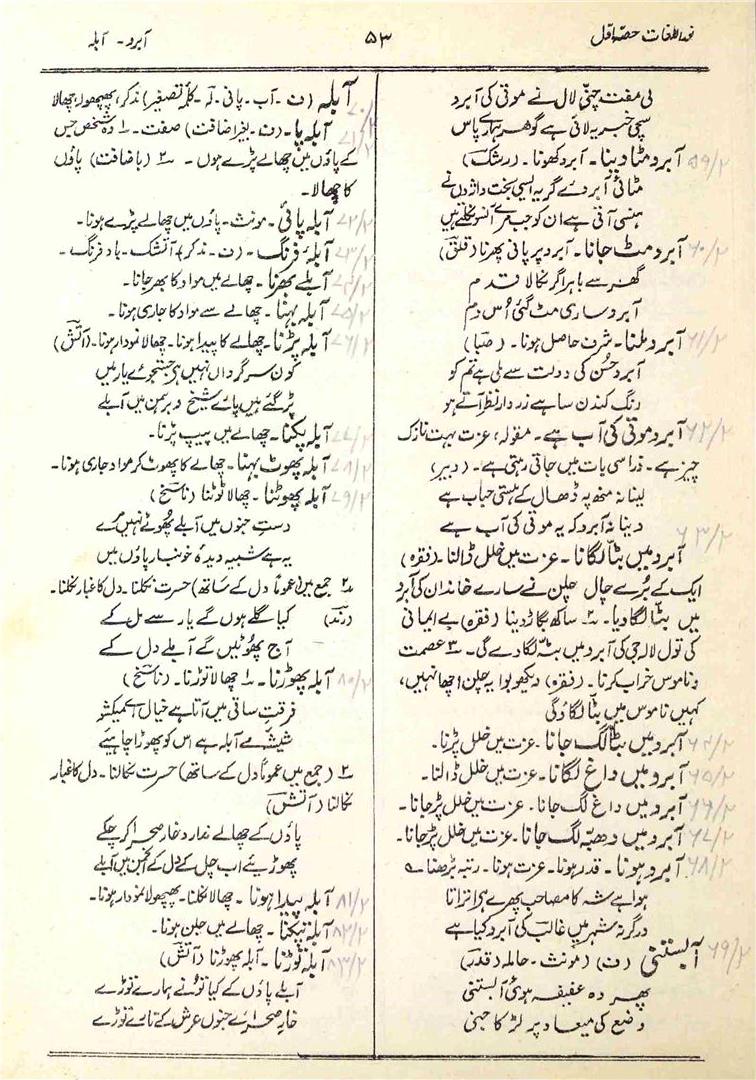 نوراللغات حصہ اول
۵۳
آبرو - آبلہ
لی مفت چنی لال نے موتی کی آبرو
سچی خبر یہ لائی ہے گوہر ہمارے پاس
۵۹/۲ آبرو مٹا دینا - آبرو کھونا - (رشک)
مٹائی آبرو دے گریہ ایسی سخت واژوں نے
ہنسی آتی ہے ان کو جب مرے آنسو نکلتے ہیں
۶۰/۲ آبرو مٹ جانا - آبرو پر پانی پھرنا (قلق)
گھر سے باہر اگر نکالا قدم
آبرو ساری مٹ گئی اُس دم
۶۱/۲ آبرو ملنا - شرف حاصل ہونا - (صبا)
آبرو حُسن کی دولت سے ملی ہے تم کو
رنگ کندن سا ہے زردار نظر آتے ہو
۶۲/۲ آبرو موتی کی آب ہے - مقولہ، عزت بہت نازک
چیز ہے - ذرا سی بات میں جاتی رہتی ہے - (دبیر)
لینا نہ منھ پہ ڈھال کے ہستی حباب ہے
دینا نہ آبرو کہ یہ موتی کی آب ہے
۶۳/۲
آبرو میں بٹّا لگانا - عزت میں خلل ڈالنا - (فقرہ)
ایک کے بُرے چال چلن نے سارے خاندان کی آبرو
میں بٹا لگا دیا - ۲ ساکھ بگاڑ دینا (فقرہ) بے ایمانی
کی تول لالہ جی کی آبرو میں بٹّہ لگا دے گی - ۳ عصمت
و ناموس خراب کرنا - (فقرہ) دیکھو بوا یہ چلن اچھا نہیں،
کہیں ناموس میں بٹا لگا دو گی
۶۴/۲ آبرو میں بٹّا لگ جانا - عزت میں خلل پڑنا -
۶۵/۲ آبرو میں داغ لگانا - عزت میں خلل ڈالنا -
۶۶/۲ آبرو میں داغ لگ جانا - عزت میں خلل پڑ جانا -
۶۷/۲ آبرو میں دھبّہ لگ جانا - عزت میں خلل پڑ جانا -
۶۸/۲ آبرو ہونا - قدر ہونا - عزت ہونا - رتبہ بڑھنا ؎
ہوا ہے شہ کا مصاحب پھرے ہے اتراتا
وگرنہ شہر میں غالب کی آبرو کیا ہے
۶۹/۲ آبستنی (ف) (مونث - حاملہ (قدر)
پھر وہ عفیفہ ہوئی آبستنی
وضع کی میعاد پر لڑکا جنی
۷۰/۲ آبلہ (ف - آب - پانی - لہ - کلمۂ تصغیر) مذکر، پھپھولا، چھالا
۷۱/۲ آبلہ پا - (ف - بغیر اضافت) صفت - ۱ وہ شخص جس
کے پاؤں میں چھالے پڑے ہوں - ۲ (با ضافت) پاؤں
کا چھالا -
۷۲/۲ آبلہ پائی - مونث - پاؤں میں چھالے پڑے ہونا -
۷۳/۲ آبلۂ فرنگ - (ف - مذکر) آتشک - باد فرنگ -
۷۴/۲ آبلے بھرنا - چھالے میں مواد کا بھر جانا -
۷۵/۲ آبلہ بہنا - چھالے سے مواد کا جاری ہونا -
۷۶/۲ آبلہ پڑنا - چھالے کا پیدا ہونا - چھالا نمودار ہونا - (آتش)
کون سرگرداں نہیں ہر جستجوئے یار میں
پڑ گئے ہیں پائے شیخ و برہمن میں آبلے
۷۷/۲ آبلہ پکنا - چھالے میں پیپ پڑنا -
۷۸/۲ آبلہ پھوٹ بہنا - چھالے کا پھوٹ کر مواد جاری ہونا -
۷۹/۲ آبلہ پھوٹنا - چھالا ٹوٹنا (ناسخ)
دستِ جنوں میں آبلے پھُوٹے نہیں مرے
یہ ہے شبیہ دیدۂ خونبار پاؤں میں
۲ جمع میں (عموماً دل کے ساتھ) حسرت نکلنا - دل کا غبار نکلنا -
(رند) کیا گلے ہوں گے یار سے مل کے
آج پھوُٹیں گے آبلے دل کے
۸۰/۲ آبلہ پھوڑنا - ۱ چھالا توڑنا - (ناسخ)
فرقتِ ساقی میں آتا ہے خیال اے میکشو
شیشۂ مے آبلہ ہے اس کو پھوڑا چاہیئے
۲ (جمع میں عموماً دل کے ساتھ) حسرت نکالنا - دل کا غبار
نکالنا (آتش)
پاؤں کے چھالے ندارد خار صحرا کر چکے
پھوڑیئے اب چل کے دل کے انجمن میں آبلے
۸۱/۲ آبلہ پیدا ہونا - چھالا نکلنا - پھپھولا نمودار ہونا -
۸۲/۲ آبلہ ٹپکنا - چھالے میں جلن ہونا -
۸۳/۲ آبلہ توڑنا - آبلہ پھوڑنا (آتش)
آبلے پاؤں کے کیا تو نے ہمارے توڑے
خار صحرائے جنوں عرش کے تارے توڑے